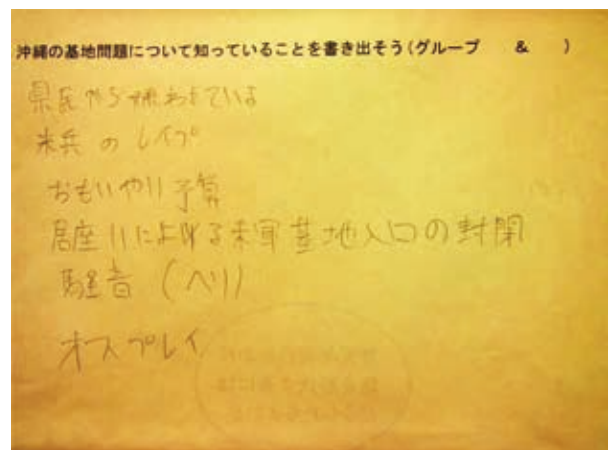 沖縄の基地問題について知っていることを書き出そう(グループ　　&　　)
県民から嫌われている
米兵のレイプ
おもいやり予算
居座りによる米軍基地入口の封閉
騒音(ヘリ)
オスプレイ